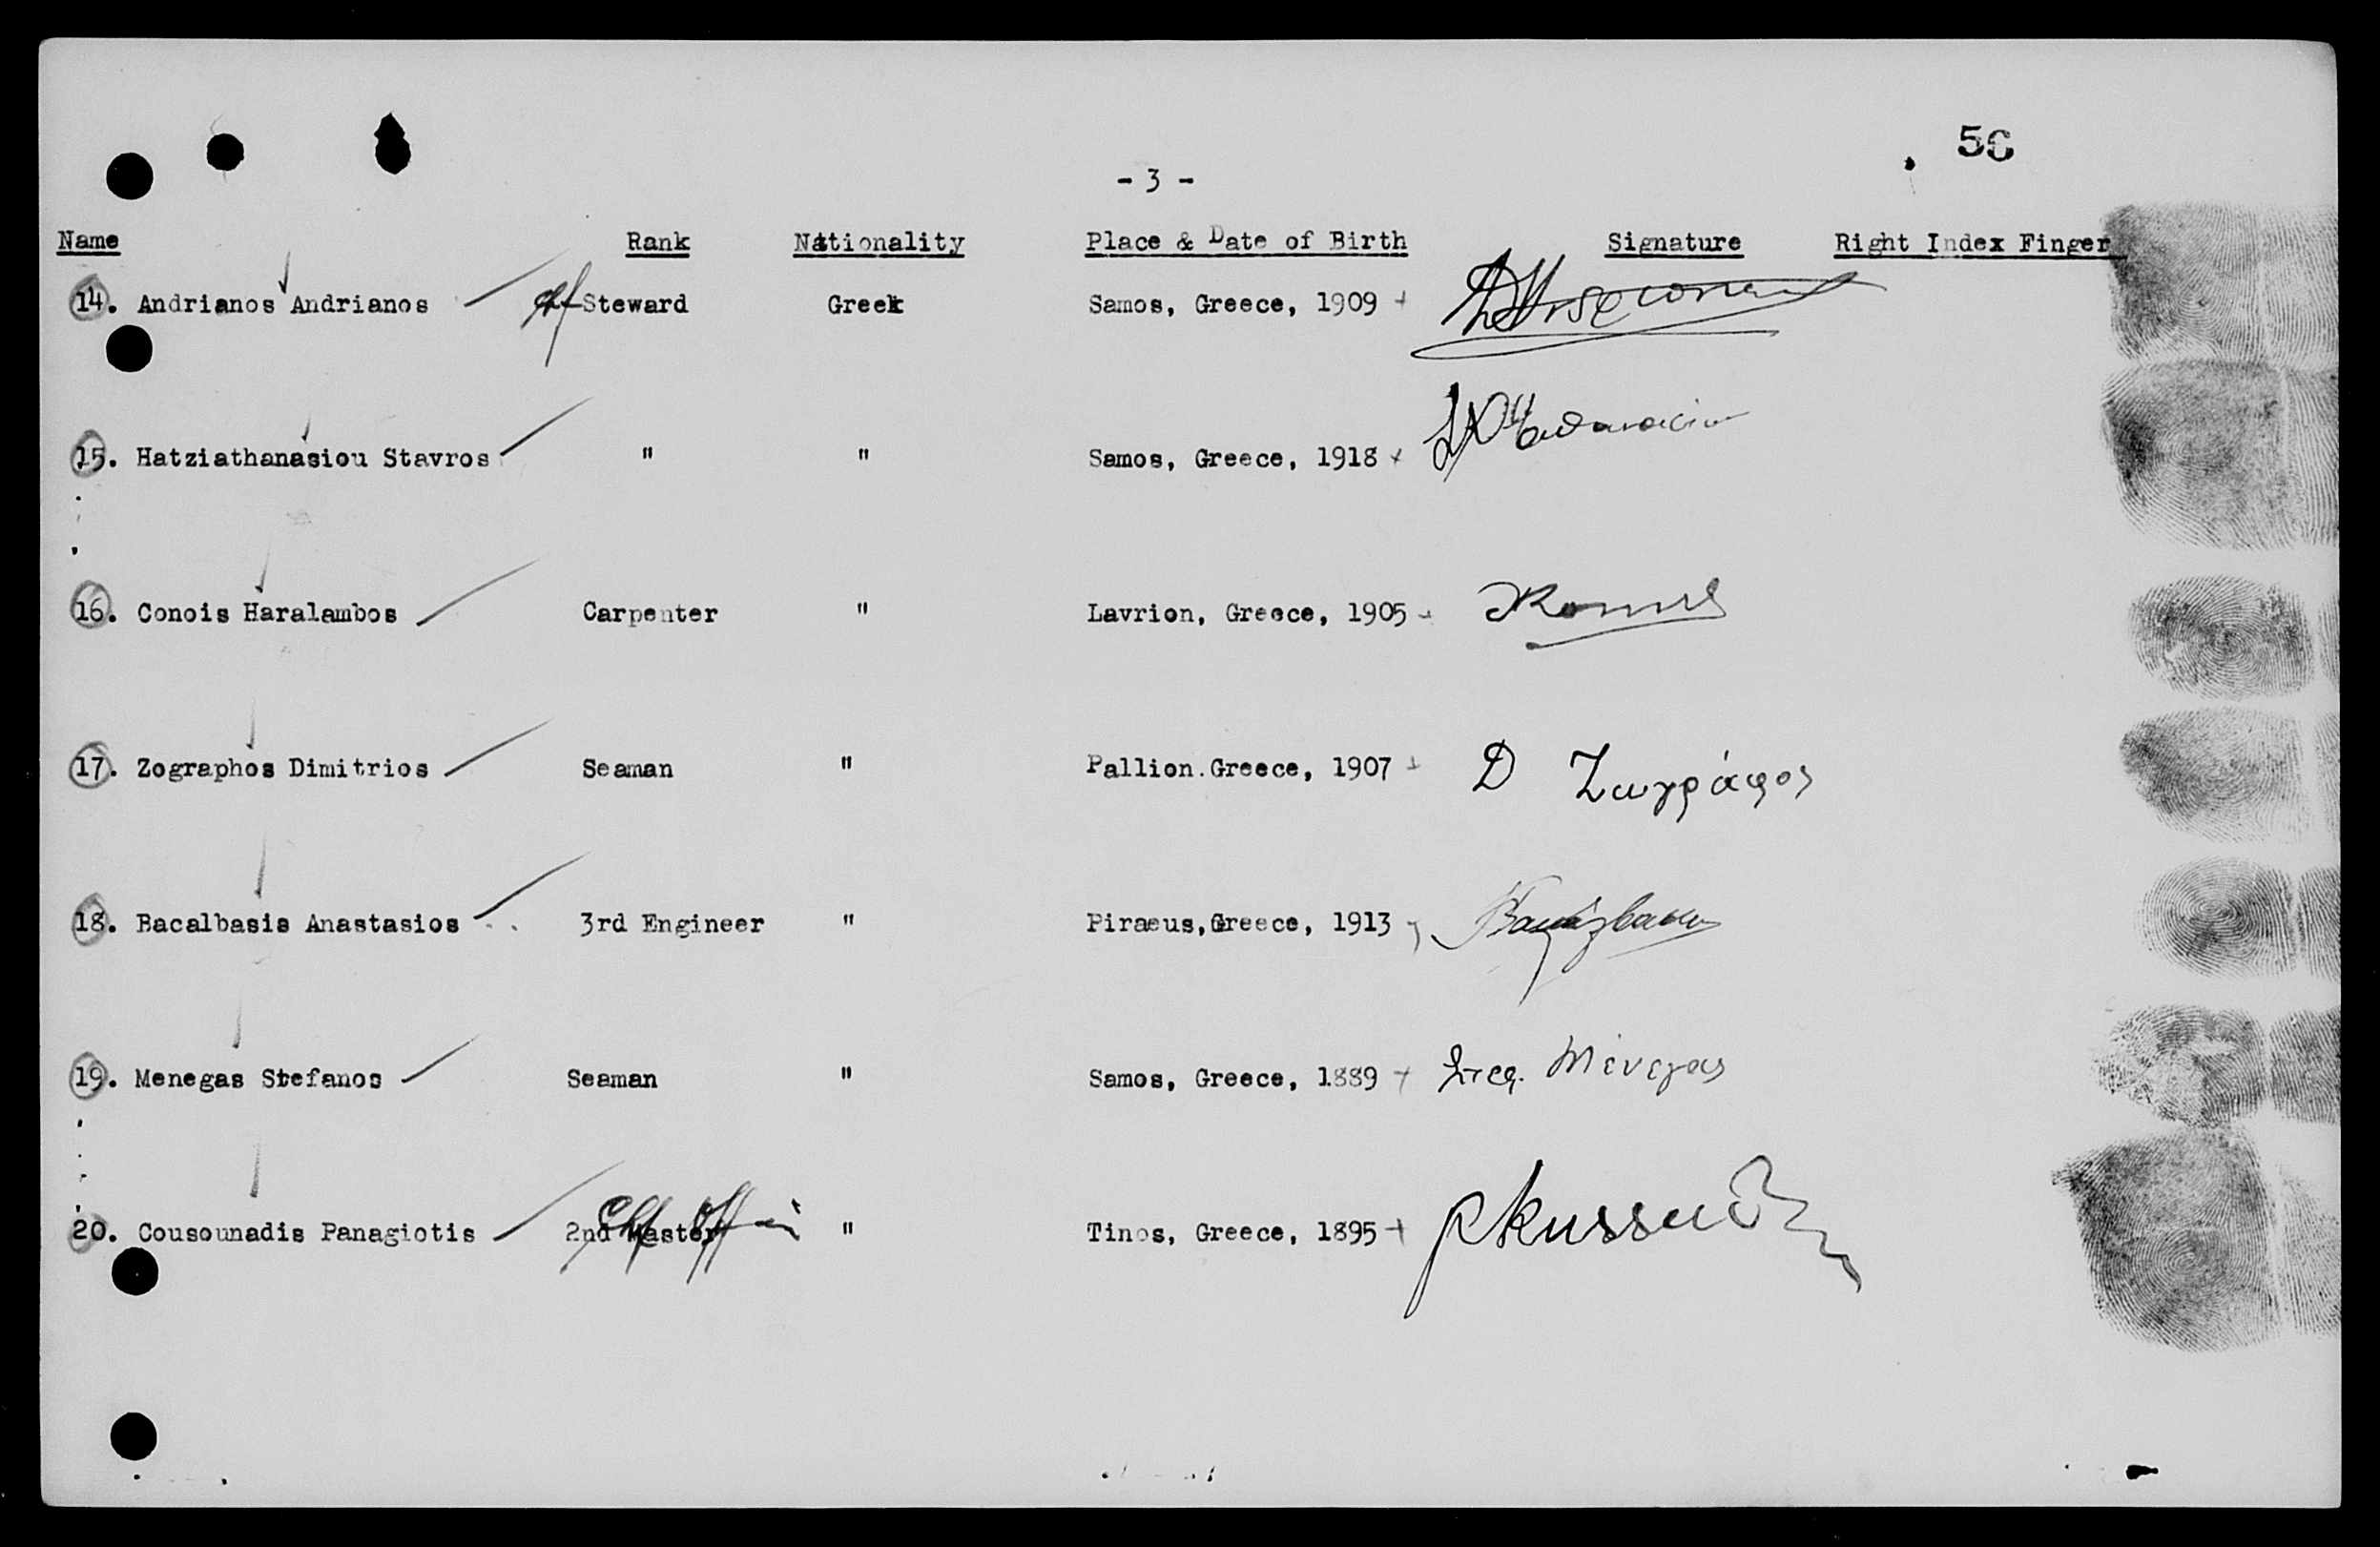 56
- 3 -
Name Rank Nationality Place & Date of Birth Signature Right Index Finger
14. Andrianos Andrianos Chf Steward Greek Samos, Greece, 1909
15. Hatziathanasiou Stavros " " Samos, Greece, 1918
16. Conois Haralambos Carpenter " Lavrion, Greece, 1905
17. Zographos Dimitrios Seaman " Pallion.Greece, 1907 D Ζωγράφος
18. Bacalbasis Anastasios 3rd Engineer " Piraeus,Greece, 1913
19. Menegas Stefanos Seaman " Samos, Greece, 1889 Στεφ. Μένεγας
20. Cousounadis Panagiotis 2nd Master " Tinos, Greece, 1895